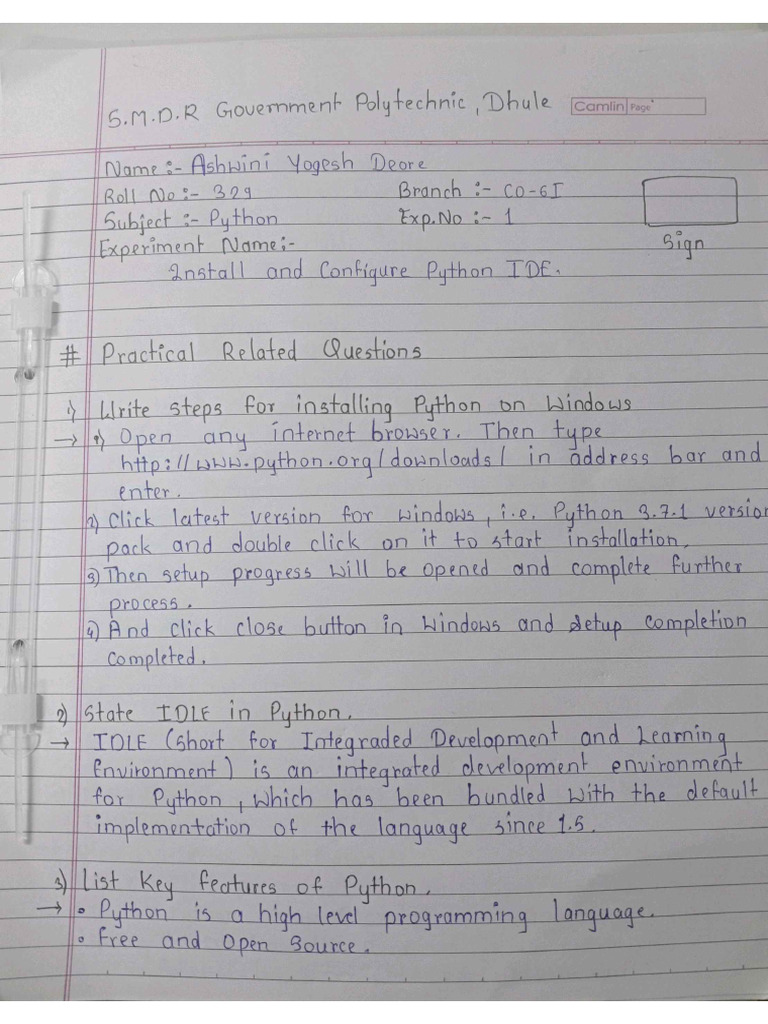 S.M.D.R Government Polytechnic, Dhule Camlin Page
Name :- Ashwini Yogesh Deore
Roll No :- 329 Branch :- CO-6I
Subject :- Python Exp.No :- 1
Experiment Name:- Sign
Install and Configure Python IDE.
# Practical Related Questions
1) Write steps for installing Python on Windows
→ 1) Open any internet browser. Then type
http://www.python.org/downloads/ in address bar and
enter.
2) Click latest version for windows, i.e. Python 3.7.1 version
pack and double click on it to start installation.
3) Then setup progress will be opened and complete further
process.
4) And click close button in Windows and Setup completion
completed.
2) State IDLE in Python.
→ IDLE (Short for Integraded Development and Learning
Environment) is an integrated development environment
for Python, which has been bundled with the default
implementation of the language since 1.5.
3) List Key features of Python.
→ • Python is a high level programming language.
• Free and Open Source.